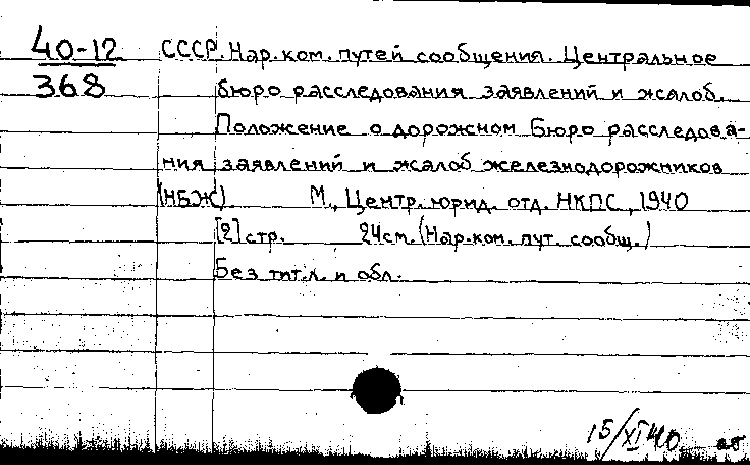 40-12 СССР. Нар. ком. путей сообщения. Центральное
368 бюро расследования заявлений и жалоб.
Положение о дорожном Бюро расследова-
ния заявлений и жалоб железнодорожников
(НБЖ). М., Центр. юрид. отд. НКПС, 1940
[2] стр. 24см. (Нар. ком. пут. сообщ.)
Без тит. л. и обл.
15/XI 40